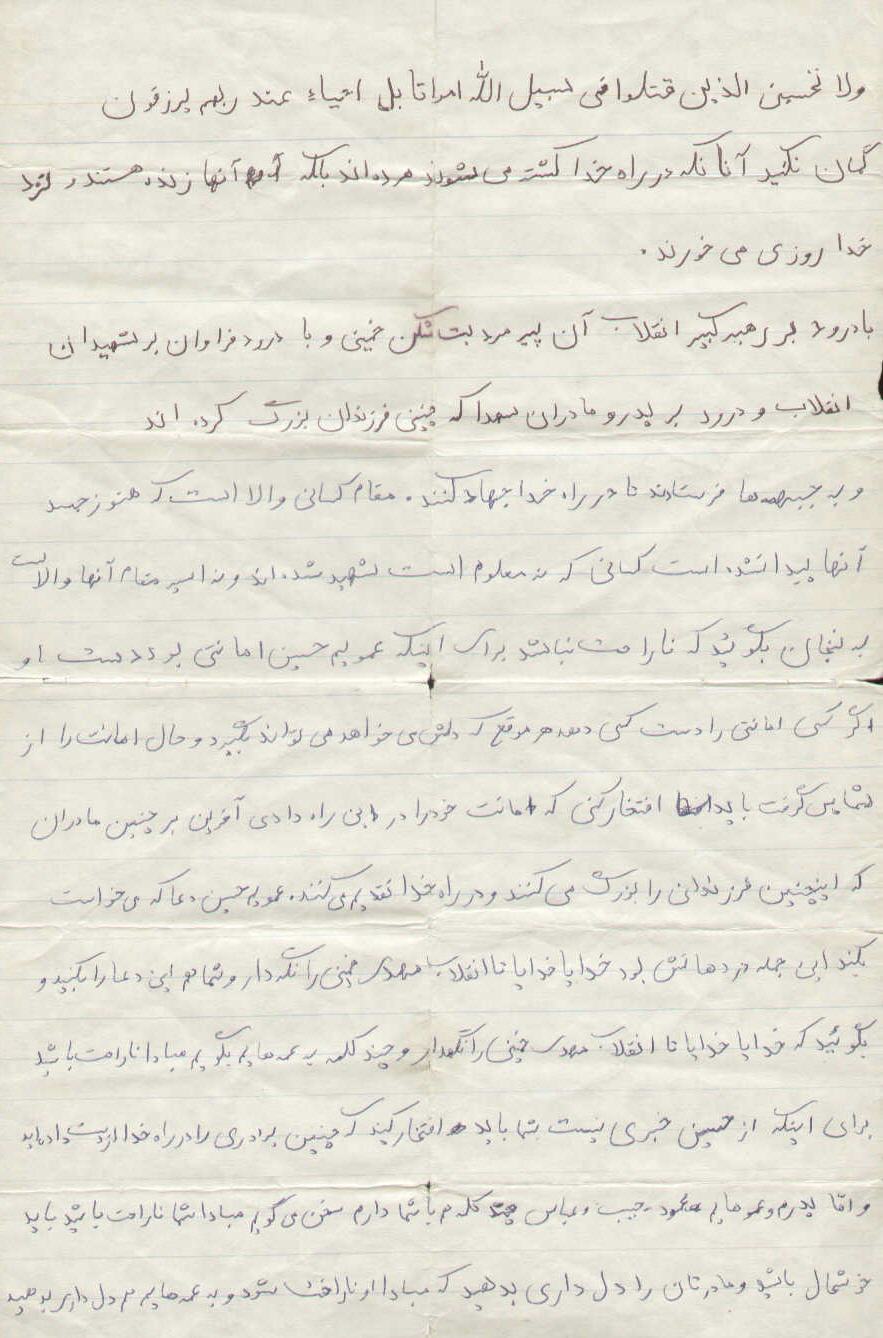 ولا تحسبن الذین قتلوا فی سبیل الله امواتا بل احیاء عند ربهم یرزقون
گمان نکنید آنانکه در راه خدا کشته می شوند مرده اند بلکه آنها زنده هستند و نزد
خدا روزی می خورند .
با درود بر رهبر کبیر انقلاب آن پیر مرد بت شکن خمینی و با درود فراوان بر شهیدان
انقلاب و درود بر پدر و مادران شهدا که چنین فرزندان بزرگ کرده اند
و به جبهه ها فرستادند تا در راه خدا جهاد کنند . مقام کسانی والا است که هنوز جسد
آنها پیدا نشده است کسانی که نه معلوم است شهید شده اند و نه اسیر مقام آنها والا است
به بگوئید که ناراحت نباشد برای اینکه عمویم حسین امانتی بود دست او
اگر کسی امانتی را دست کسی دهد هر موقع که دلش می خواهد می تواند بگیرد و حال امانت را از
شما پس گرفت باید افتخار کنی که امانت خود را در این راه دادی آفرین بر چنین مادران
که اینچنین فرزندانی را بزرگ می کنند و در راه خدا تقدیم می کنند . عمویم حسین دعا که می خواست
بکند این جمله در دهانش بود خدایا خدایا تا انقلاب مهدی خمینی را نگه دار و شما هم این دعا را بکنید و
بگوئید که خدایا خدایا تا انقلاب مهدی خمینی را نگهدار و چند کلمه به عمه هایم بگویم مبادا ناراحت باشید
برای اینکه از حسین خبری نیست شما باید افتخار کنید که چنین برادری را در راه خدا از دست داده اید
و اما پدرم و عموهایم محمود - حبیب و عباس چند کلمه هم با شما دارم سخن می گویم مبادا شما ناراحت باشید باید
خوشحال باشید و مادرتان را دل داری بدهید که مبادا او ناراحت شود و به عمه هایم هم دل داری بدهید